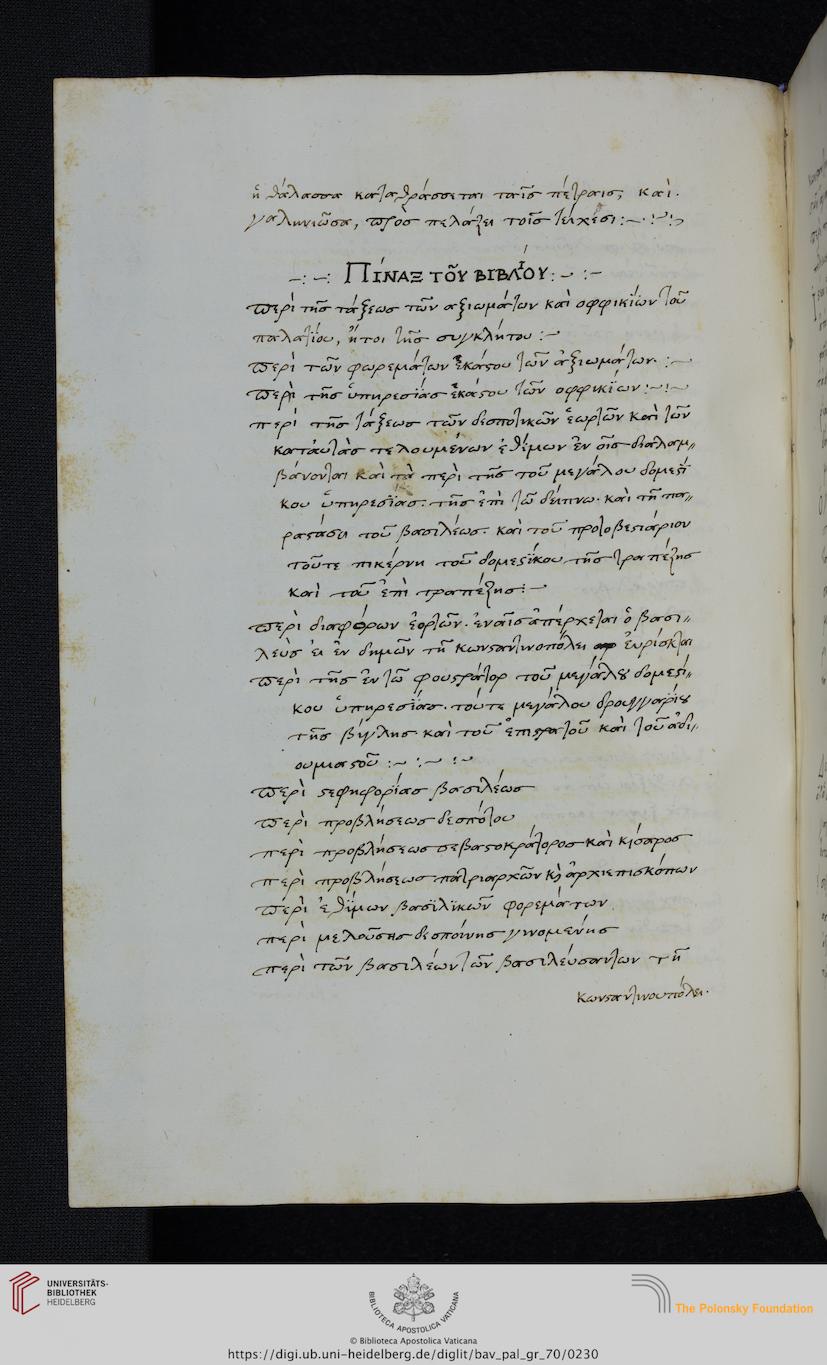 ἡ θάλασσα καταθράσσεται ταῖς πέτραις, καὶ.
γαληνιῶσα, πρὸς πελάζει τοῖς τείχεσι:~
ΠΊΝΑΞ ΤΟΥ͂ ΒΙΒΛΊΟΥ:~:~
Περὶ τῆς τάξεως τῶν αξιωμάτων καὶ οφφικίων τοῦ
παλατίου, ἤτοι τῆς συγκλήτου:~
Περὶ τῶν φωρεμάτων ἑκάστου τῶν ἀξιωμάτων.:~
Περὶ τῆς ὑπηρεσίας ἑκάστου τῶν οφφικίων:~:~
περὶ τῆς τάξεως τῶν δεσποτικῶν ἑωρτῶν καὶ τῶν
κατάυτὰς τελουμένων ἐθίμων ἐν οἷς διαλαμ〃
βάνονται καὶ τὰ περὶ τῆς τοῦ μεγάλου δομεστί
κου ὑπηρεσίας. τῆς ἐπὶ τῶ δείπνω. καὶ τῆ πα〃
ραστάσει τοῦ βασιλέως. καὶ τοῦ προτοβεστιάριου
τοῦτε πικέρνη τοῦ δομεστίκου τῆς τραπέζης
καὶ τοῦ ἐπὶ τραπέζης:~
Περὶ διαφόρων ἑορτῶν. ἐναῖς ἀπέρχεται ὁ βασι〃
λεὺς ἐι ἐν δημῶν τῆ κωνσταντινοπόλει ἐυρίσκεται
Περὶ τῆς ἐν τῶ φουσράτορ τοῦ μεγάλου δομεστί〃
κου ὑπηρεσίας. τόυτε μεγάλου δρουγγαρίου
τῆς βίγλης καὶ τοῦ ἐπιστρατοῦ καὶ τοῦ ἀδι〃
ουμιαστοῦ:~:~:~
Περὶ στεφηφορίας βασιλέως
Περὶ προβλήσεως δεσπότου
περὶ προβλήσεως σεβαστοκράτορος καὶ κίσαρος
περὶ προβλήσεως πατριαρχῶν κὶ ἀρχιεπισκόπων
Περὶ ἐθίμων βασιλικῶν φορεμάτων
περὶ μελούσης δεσποίνης γινομενής
περὶ τῶν βασιλέων τῶν βασιλευσαντων τῆ
κωνσταντινουπόλει.
UNIVERSITÄTS-
BIBLIOTHEK
HEIDELBERG
BIBLIOTECA APOSTOLICA VATICANA
The Polonsky Foundation
© Biblioteca Apostolica Vaticana
https://digi.ub.uni-heidelberg.de/diglit/bav_pal_gr_70/0230